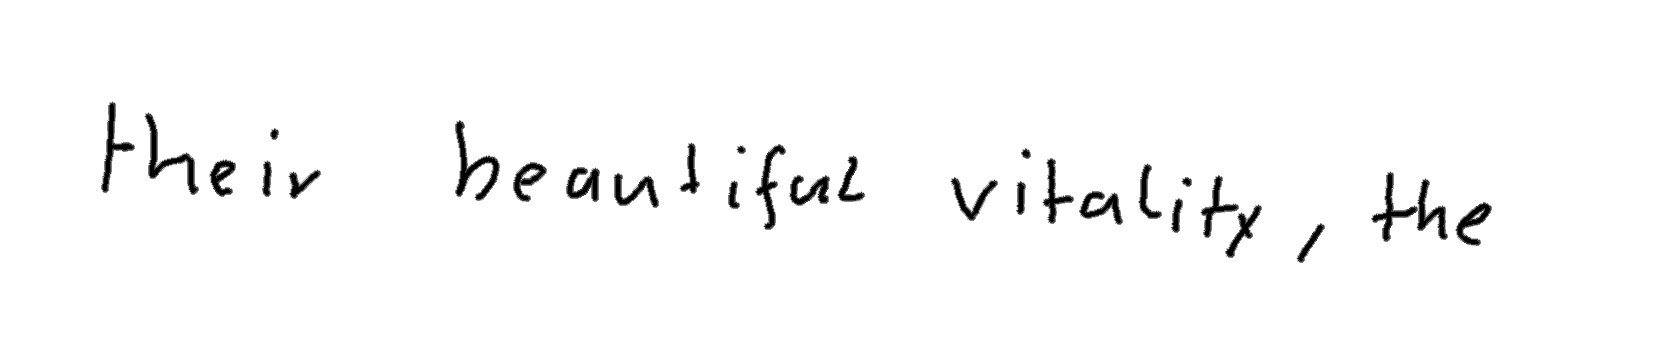 their beautiful vitality, the